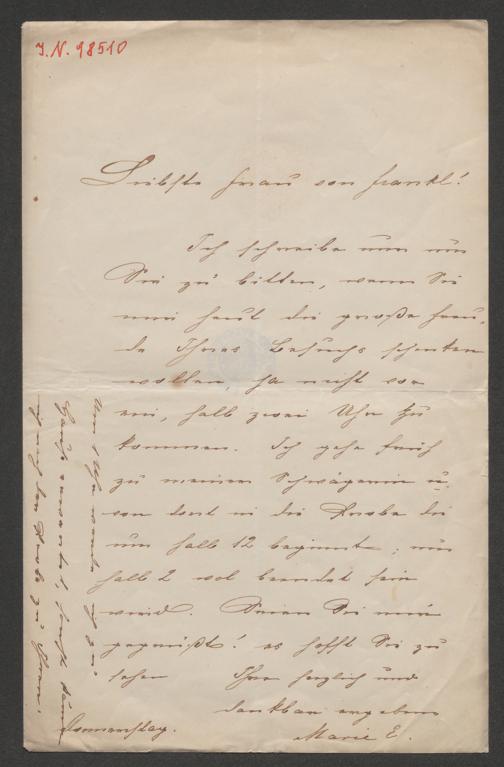 J.N. 98510
Liebste Frau von Frankl!
Ich schreibe nun um
Sie zu bitten, wenn Sie
mir heut die große Freu-
de Ihres Besuchs schenken
wollen, ja nicht vor
ein, halb zwei Uhr zu
kommen. Ich gehe früh
zu meiner Schwägerin u.
von dort in die Probe die
um halb 12 beginnt; um
halb 2 wol beendet sein
wird. Seien Sie mir
gegrüßt! es hofft Sie zu
sehen Ihre herzlich und
dankbar ergebene
Marie E.
Donnerstag.
Um 1 Uhr werde ich zu
Hause erwartet sonst käme
ich nach der Probe zu Ihnen.